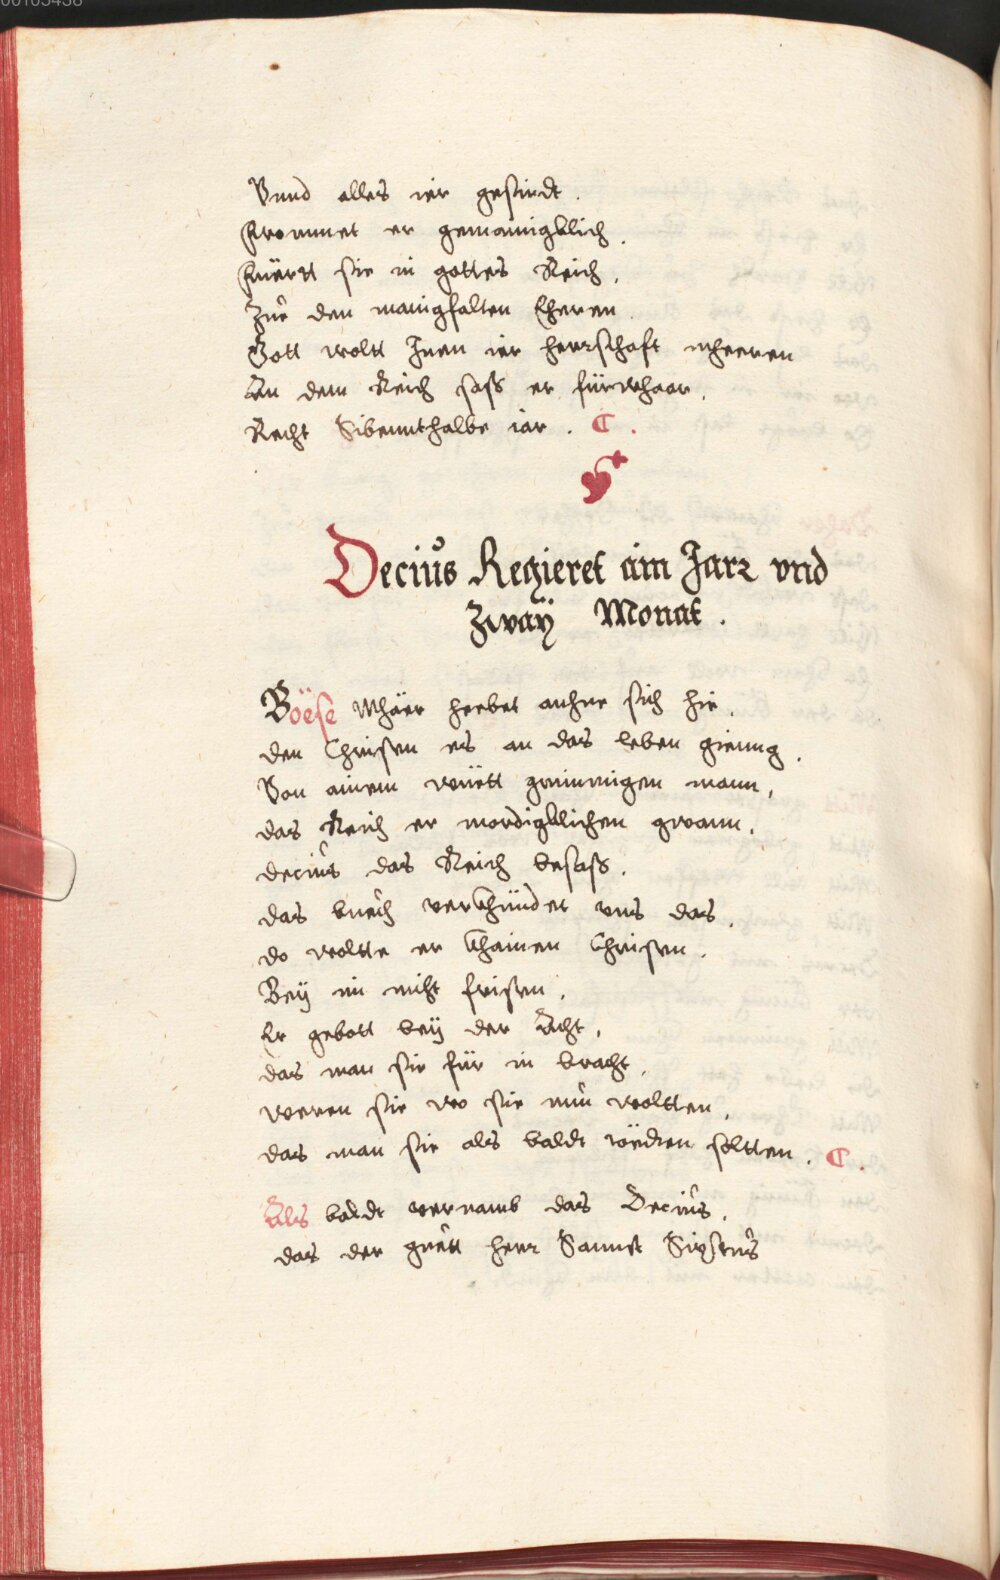 Vnnd alles ier gesindt.
Frommet er gemainigklich.
Fuertt sie in gottes Reich.
Zue den manigfalten Eheren.
Gott woltt Inen ier herrschaft mheeren
An dem Reich sass er fürwhaar.
Recht Sibennthalbe iar. C.
Decius Regieret ain Jarr vnd
Zwaÿ Monat.
Böëse Mhäer heebet anhne sich hie.
den Christen es an das leben gienng.
Von ainem wuett grimmigen mann,
das Reich er mordigklichen gwann.
decius das Reich besass.
das buech verkhündet vns das.
do woltte er khainen Christen.
Beÿ im nicht fristen.
Er gebott beÿ der Acht.
das man sie für in bracht.
weren sie wo sie nun woltten.
das man sie als baldt tödten soltten. C.
Als baldt vernamb das Decius.
das der guett herr Sannct Sixtus